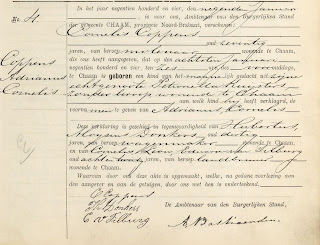 No. 4
Coppens
Adrianus
Cornelis
In het jaar negentien honderd en vier, den negenden Januari
is voor ons, Ambtenaar van den Burgerlijken Stand
der gemeente CHAAM, provincie Noord-Brabant, verschenen:
Cornelis Coppens
oud zeventig
jaren, van beroep molenaar wonende te Chaam,
die ons heeft aangegeven, dat op den achtsten Januari
negentien honderd en vier, des ten zes ure voormiddags,
te Chaam is geboren een kind van het mannelijk geslacht uit zijne
echtgenoote Petronella
zonder beroep, wonende te Chaam
aan welk kind hij heeft verklaard, de
voornamen te geven van Adrianus, Cornelis
Deze verklaring is geschied in tegenwoordigheid van Hubertus,
Aloysius Donkers, oud dertig
jaren, van beroep wagenmaker wonende te Chaam
en van Cornelis van Tilburg
oud achten jaren, van beroep landbouwer
wonende te Chaam.
Waarvan door ons deze akte is opgemaakt, welke, na gedane voorlezing aan
den aangever en aan de getuigen, door ons met hen is onderteekend.
C Coppens
H Donkers
C. v. Tilburg
De Ambtenaar van den Burgerlijken Stand,